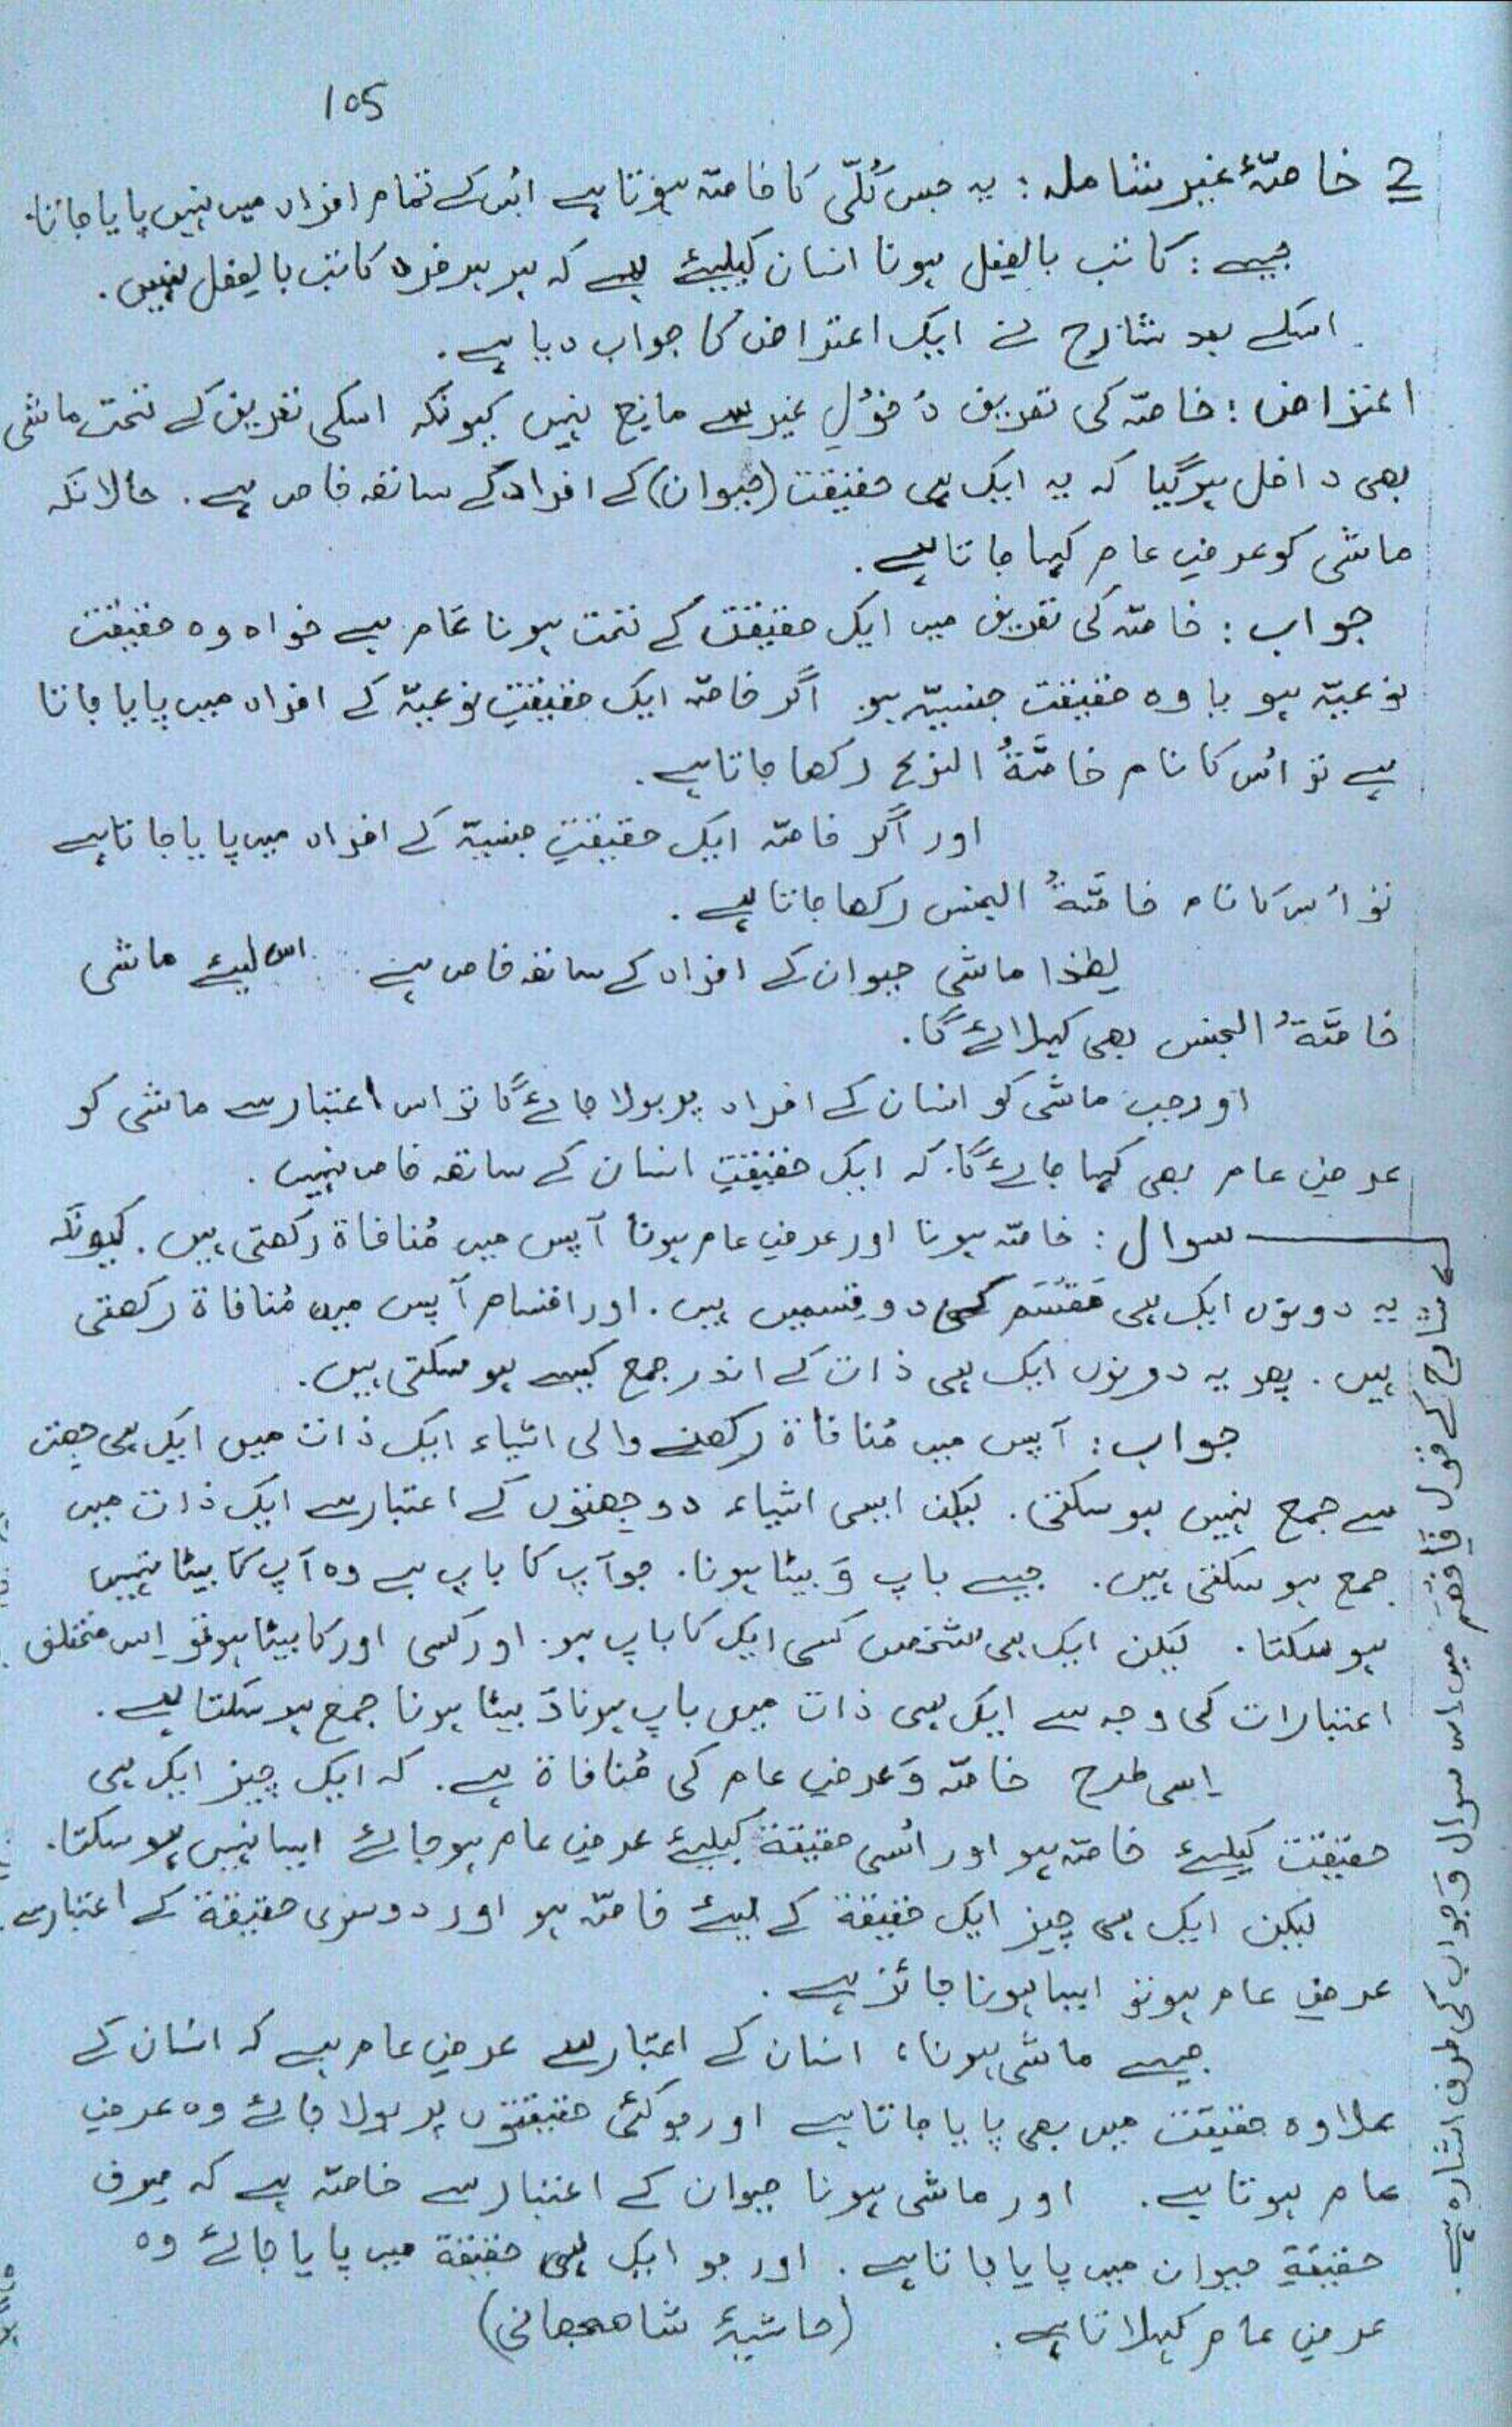 105
2 خاصّۂ غیر شاملہ: یہ جس کُلّی کا خاصّہ ہوتا ہے اُس کے تمام افراد میں نہیں پایا جاتا.
جیسے: کاتب بالفعل ہونا انسان کیلیئے ہے کہ ہر ہر فرد کاتب بالفعل نہیں.
اسکے بعد شارح نے ایک اعتراض کا جواب دیا ہے.
اعتراض: خاصّہ کی تعریف دُخُولِ غیر سے مانع نہیں کیونکہ اسکی تعریف کے تحت ماشی
بھی داخل ہوگیا کہ یہ ایک ہی حقیقت (حیوان) کے افراد کے ساتھ خاص ہے. حالانکہ
ماشی کو عرضِ عام کہا جاتا ہے.
جواب: خاصّہ کی تعریف میں ایک حقیقت کے تحت ہونا عَام ہے خواہ وہ حقیقت
نوعیّہ ہو یا وہ حقیقت جنسیّہ ہو. اگر خاصّہ ایک حقیقتِ نوعیّہ کے افراد میں پایا جاتا
ہے تو اُس کا نام خاصَّۃُ النوع رکھا جاتا ہے.
اور اگر خاصّہ ایک حقیقتِ جنسیّۃ کے افراد میں پایا جاتا ہے
تو اُس کا نام خاصَّۃُ الجنس رکھا جاتا ہے.
لھٰذا ماشی حیوان کے افراد کے ساتھ خاص ہے اس لیئے ماشی
خاصَّۃُ الجنس بھی کہلائے گا.
اور جب ماشی کو انسان کے افراد پر بولا جائے گا تو اس اعتبار سے ماشی کو
عرضِ عام بھی کہا جائے گا. کہ ایک حقیقتِ انسان کے ساتھ خاص نہیں.
سوال: خاصّہ ہونا اور عرضِ عام ہونا آپس میں مُنافاۃ رکھتی ہیں. کیونکہ
یہ دونوں ایک ہی مَقْسَم کی دو قِسمیں ہیں. اور اقسام آپس میں مُنافاۃ رکھتی
ہیں. پھر یہ دونوں ایک ہی ذات کے اندر جمع کیسے ہو سکتی ہیں.
جواب: آپس میں مُنافاۃ رکھنے والی اشیاء ایک ذات میں ایک ہی جھت
سے جمع نہیں ہو سکتی. لیکن ایسی اشیاء دو جھتوں کے اعتبار سے ایک ذات میں
جمع ہو سکتی ہیں. جیسے باپ وَ بیٹا ہونا. جو آپ کا باپ ہے وہ آپ کا بیٹا نہیں
ہو سکتا. لیکن ایک ہی شخص کسی ایک کا باپ ہو. اور کسی اور کا بیٹا ہو تو اِس مختلف
اعتبارات کی وجہ سے ایک ہی ذات میں باپ ہونا وَ بیٹا ہونا جمع ہو سکتا ہے.
اِسی طرح خاصّہ وَ عرضِ عام کی مُنافاۃ ہے. کہ ایک چیز ایک ہی
حقیقت کیلیئے خاصّہ ہو اور اُسی حقیقۃ کیلیئے عرضِ عام ہو جائے ایسا نہیں ہو سکتا.
لیکن ایک ہی چیز ایک حقیقۃ کے لیئے خاصّہ ہو اور دوسری حقیقۃ کے اعتبار سے
عرضِ عام ہو تو ایسا ہونا جائز ہے.
جیسے ماشی ہونا، انسان کے اعتبار سے عرضِ عام ہے کہ انسان کے
علاوہ حقیقت میں بھی پایا جاتا ہے اور جو کئی حقیقتوں پر بولا جائے وہ عرضِ
عام ہوتا ہے. اور ماشی ہونا حیوان کے اعتبار سے خاصّہ ہے کہ صرف
حقیقۃِ حیوان میں پایا جاتا ہے. اور جو ایک ہی حقیقۃ میں پایا جائے وہ
عرضِ عام کہلاتا ہے. (حاشیۂ شاھجھانی)
شارح کے قول فَافْھَم میں اس سوال وَ جواب کی طرف اشارہ ہے.